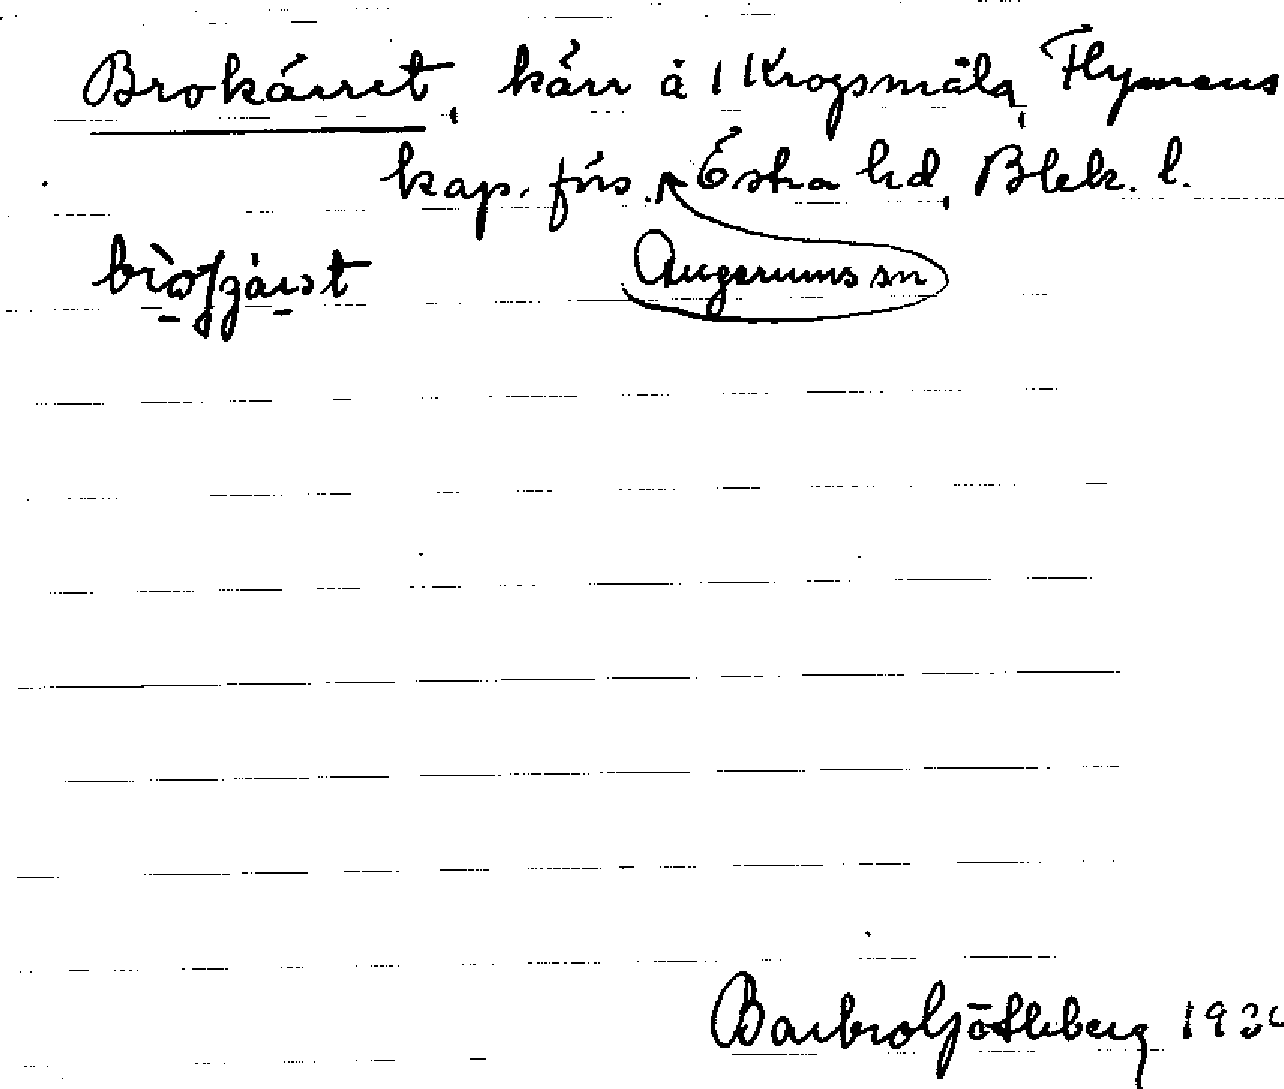 Brokärret, kärr å 1 Krogsmåla, Flymens
kap. förs., Östra hd, Blek. l.
Augerums sn
Barbro Götleberg